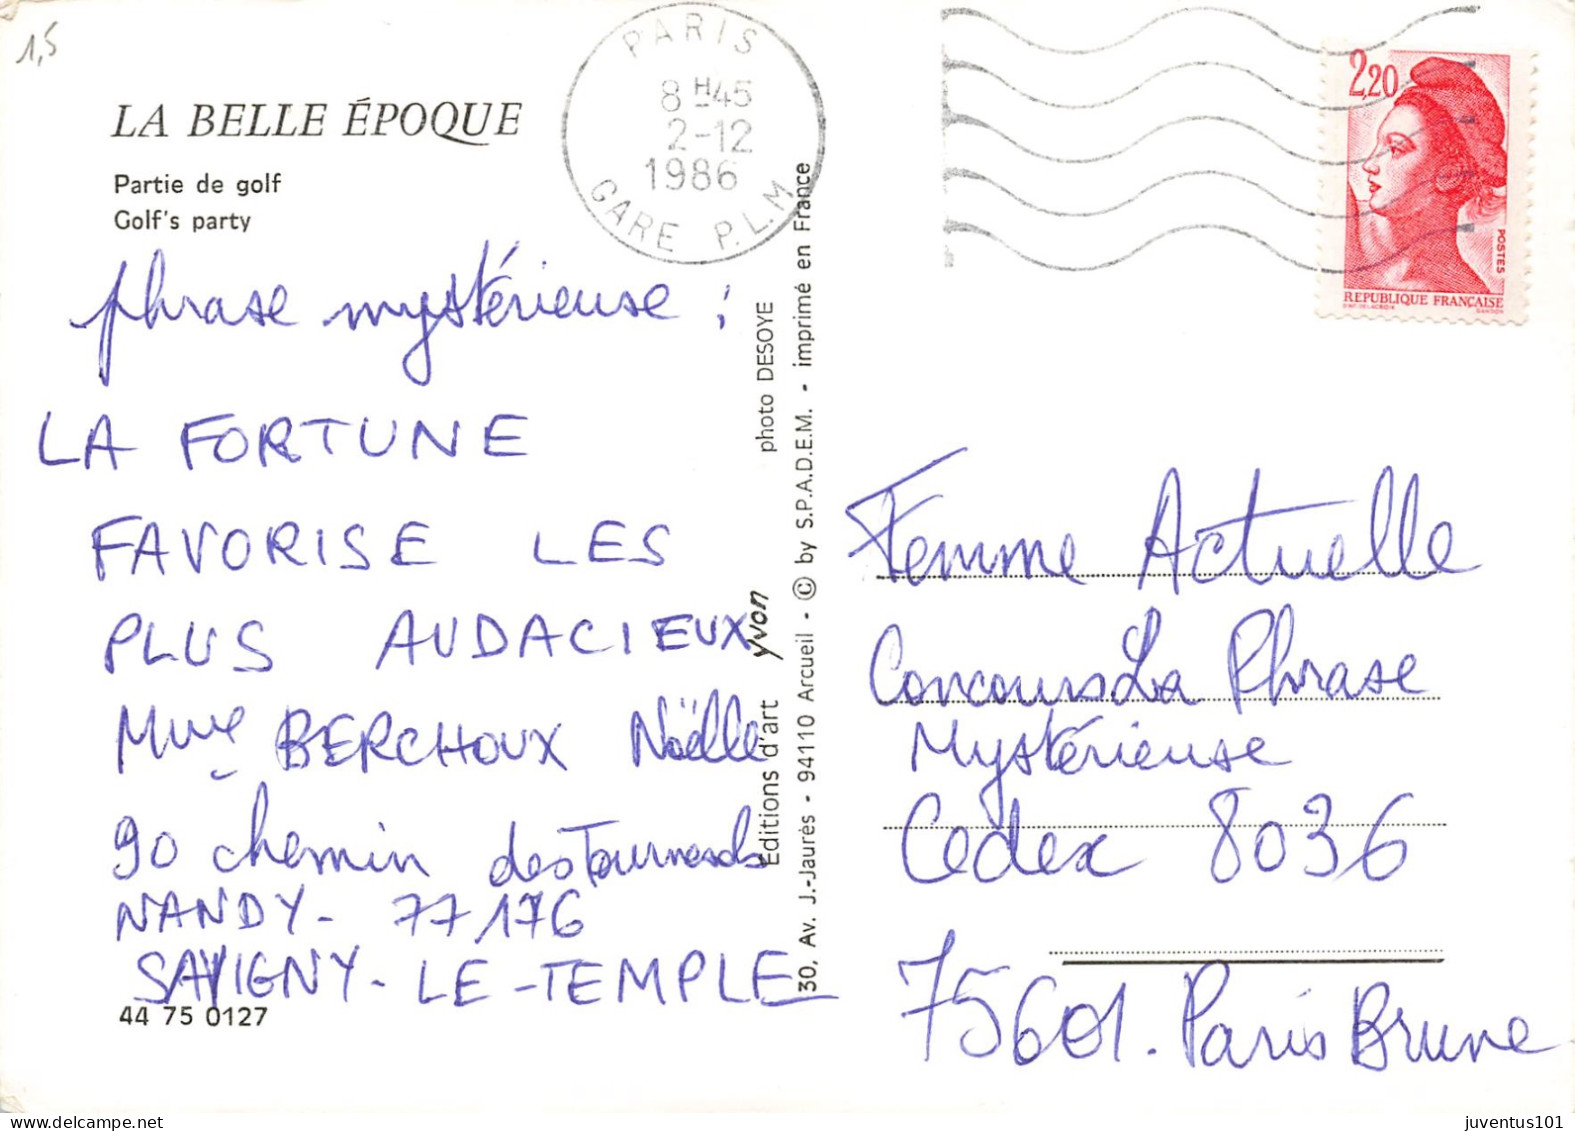 1,5
LA BELLE ÉPOQUE
Partie de golf
Golf's party
phrase mystérieuse :
LA FORTUNE
FAVORISE LES
PLUS AUDACIEUX
Mme BERCHOUX Noëlle
90 chemin des Tournesols
NANDY - 77176
SAVIGNY - LE - TEMPLE
44 75 0127
PARIS
8H45
2-12
1986
GARE P.L.M
photo DESOYE
Editions d'art yvon
30, Av. J.-Jaurès - 94110 Arcueil - © by S.P.A.D.E.M. - imprimé en France
2,20
POSTES
REPUBLIQUE FRANÇAISE
Femme Actuelle
Concours La Phrase
Mystérieuse
Cedex 8036
75601. Paris Brune
juventus101